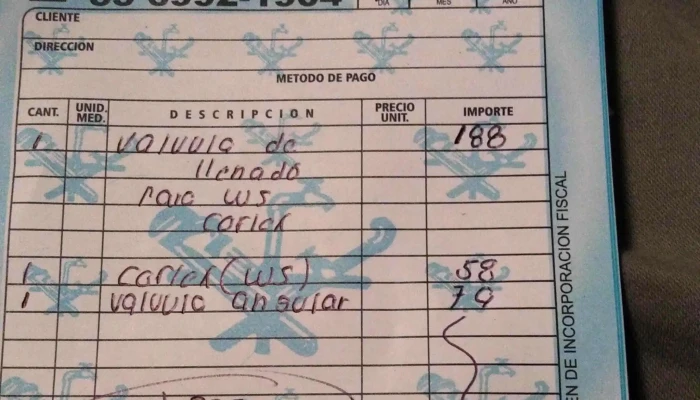 DIA MES AÑO
CLIENTE
DIRECCION
METODO DE PAGO
CANT. UNID. MED. DESCRIPCION PRECIO UNIT. IMPORTE
1 valvula de 188
llenado
para WS
corick
1 corick (WS) 58
1 valvula angular 79
EN DE INCORPORACION FISCAL